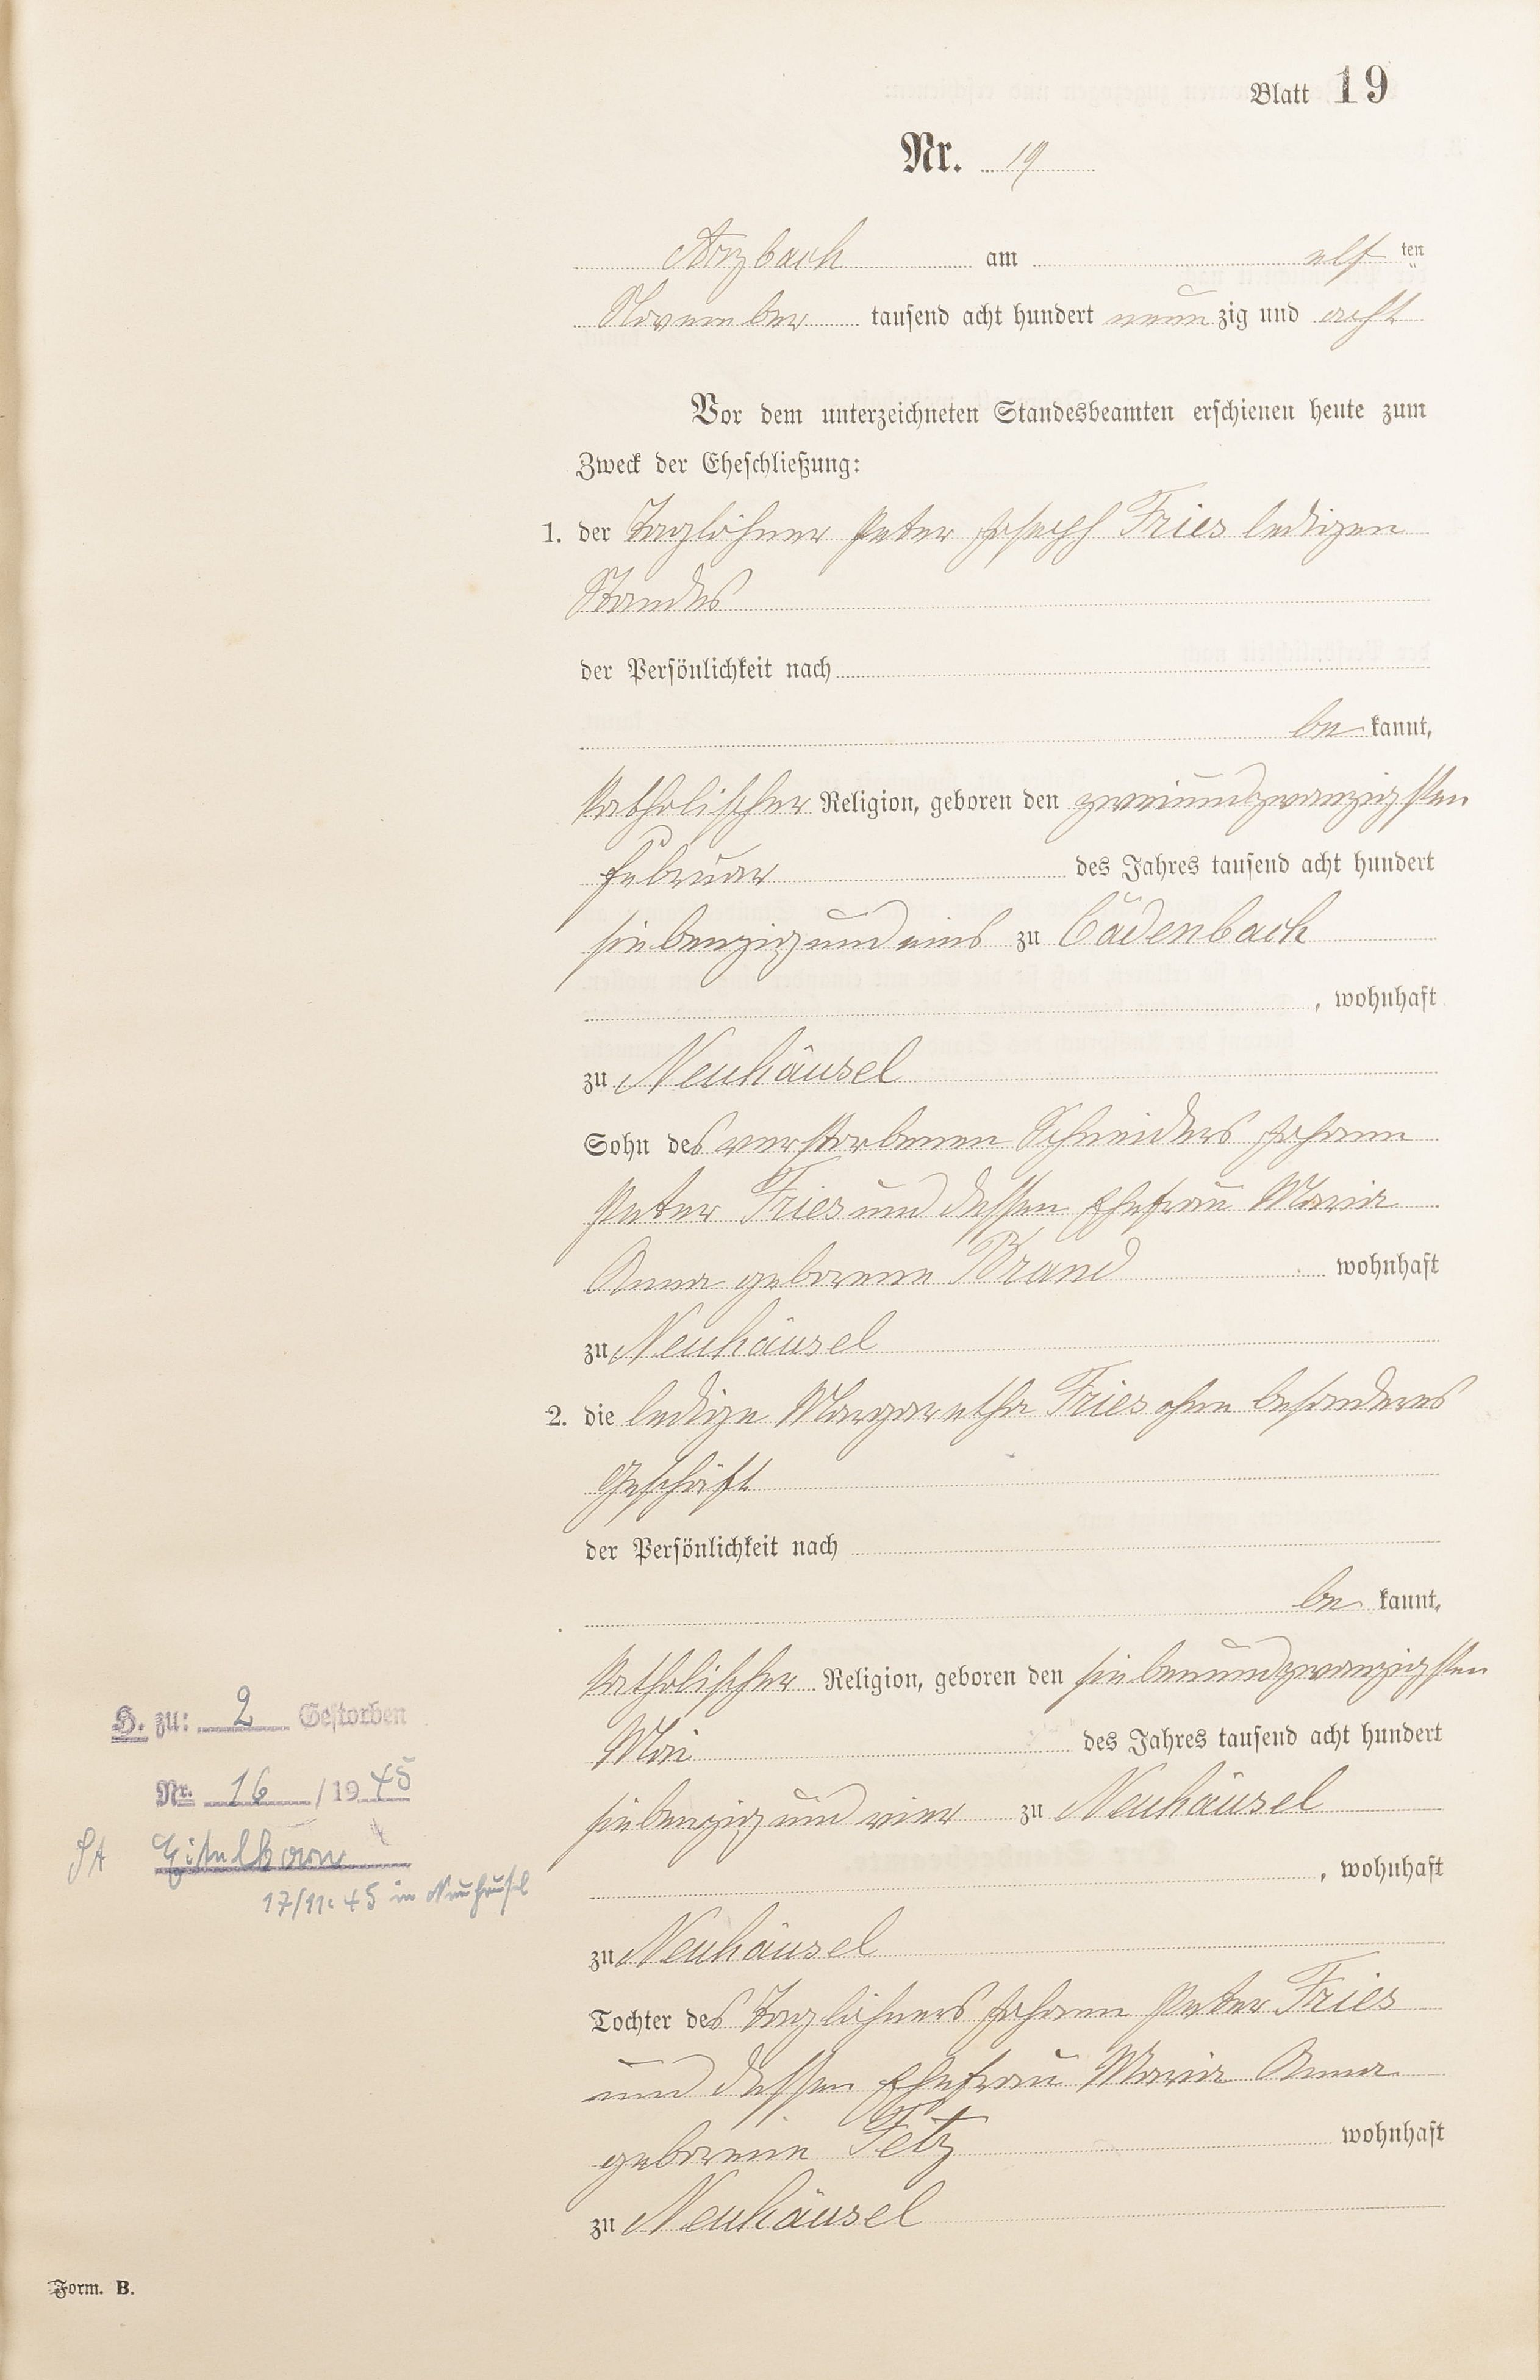 Blatt 19
Nr. 19
Arzbach am elften
November tausend acht hundert neunzig und acht
Vor dem unterzeichneten Standesbeamten erschienen heute zum
Zweck der Eheschließung:
1. der Taglöhner Peter Joseph Fries ledigen
Standes
der Persönlichkeit nach
bekannt,
katholischer Religion, geboren den zweiundzwanzigsten
Februar des Jahres tausend acht hundert
siebenzig und eins zu Cadenbach
, wohnhaft
zu Neuhäusel
Sohn des verstorbenen Schneiders Johann
Peter Fries und dessen Ehefrau Maria
Anna geborene Brand wohnhaft
zu Neuhäusel
2. die ledige Margaretha Fries ohne besonderes
Geschäft
der Persönlichkeit nach
bekannt,
katholischer Religion, geboren den siebenundzwanzigsten
Mai des Jahres tausend acht hundert
siebenzig und vier zu Neuhäusel
, wohnhaft
zu Neuhäusel
Tochter des Taglöhners Johann Peter Fries
und dessen Ehefrau Maria Anna
geborene Fetz wohnhaft
zu Neuhäusel
H. zu: 2 Gestorben
Nr. 16 / 1945
StA Eitelborn
17/11. 45 in Neuhäusel
Form. B.